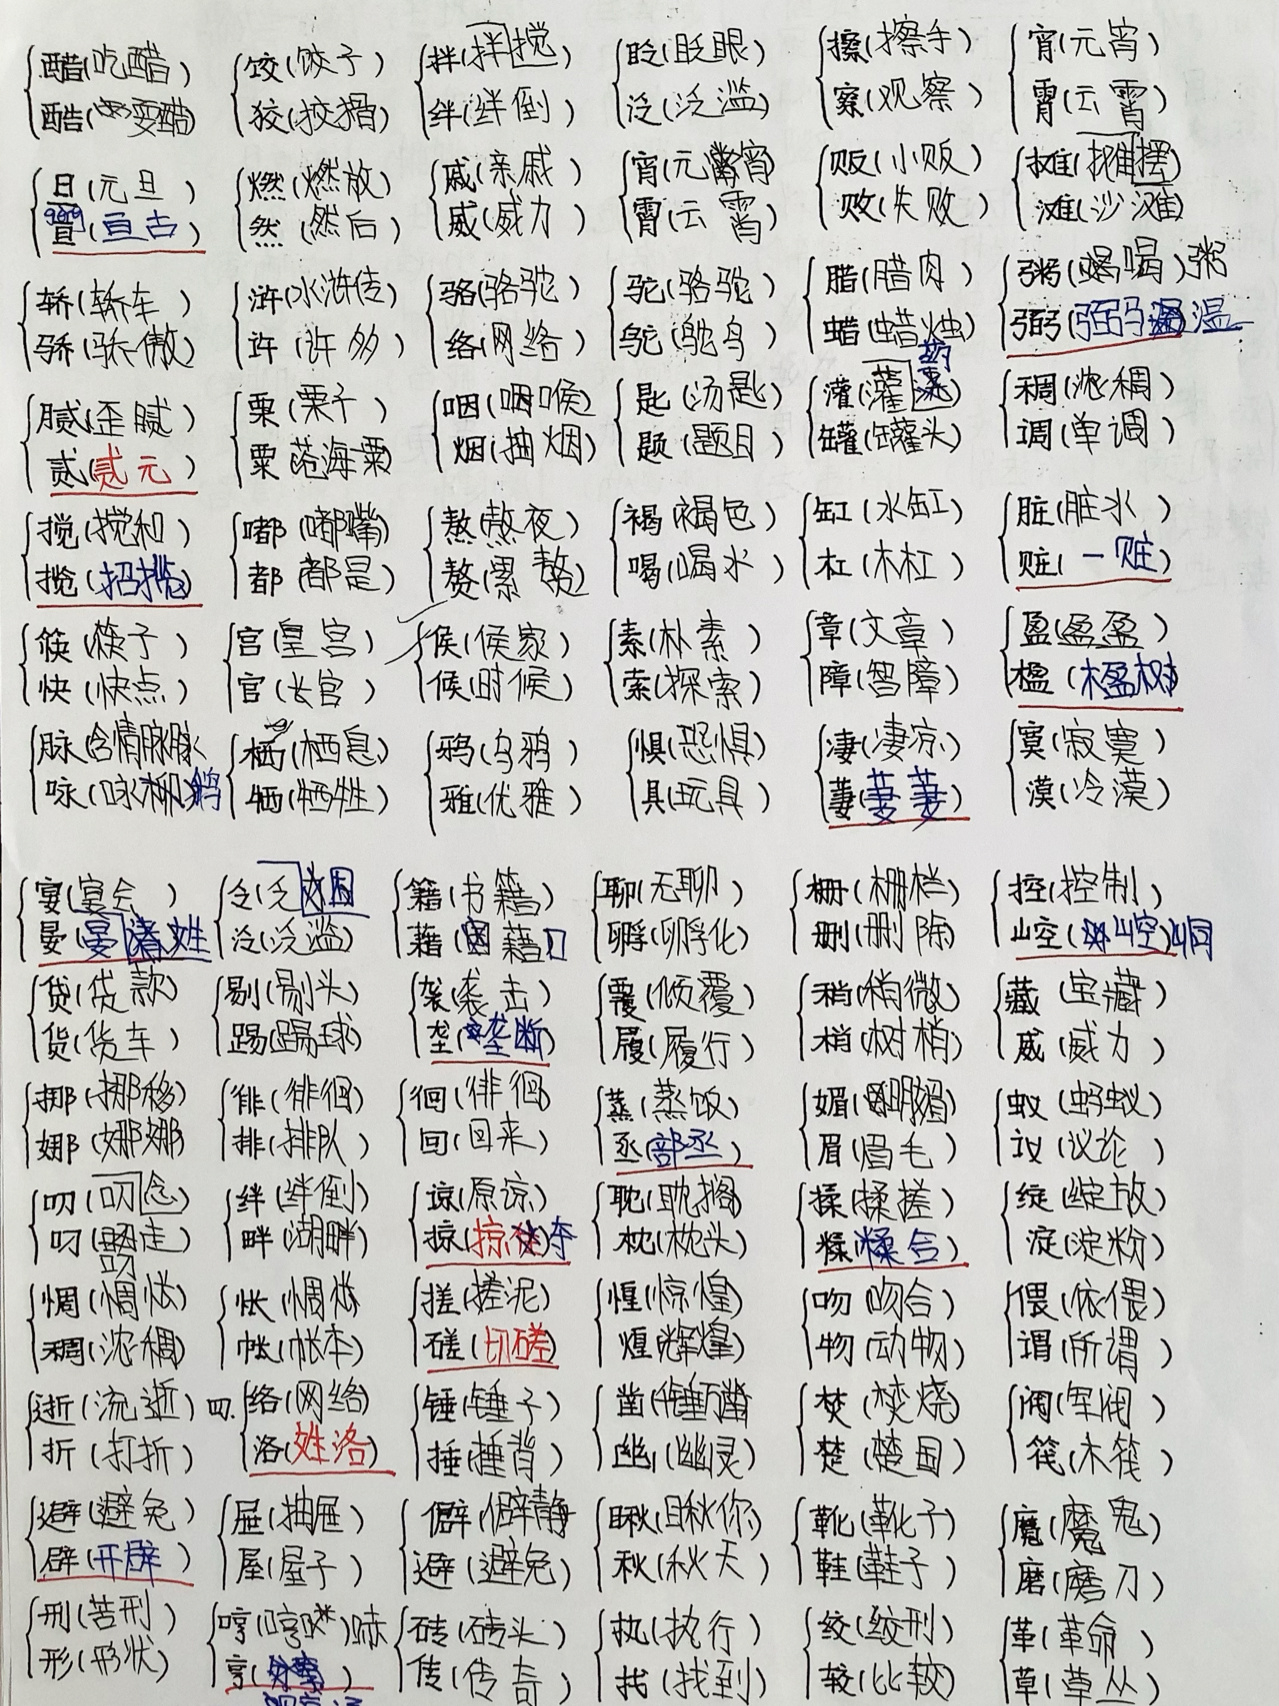 醋(吃醋) 饺(饺子) 拌(拌搅) 眨(眨眼) 擦(擦手) 宵(元宵)
酷(耍酷) 狡(狡猾) 绊(绊倒) 泛(泛滥) 察(观察) 霄(云霄)
旦(元旦) 燃(燃放) 戚(亲戚) 宵(元宵) 贩(小贩) 摊(摊摆)
亘(亘古) 然(然后) 威(威力) 霄(云霄) 败(失败) 滩(沙滩)
轿(轿车) 浒(水浒传) 骆(骆驼) 驼(骆驼) 腊(腊肉) 粥(喝粥)
骄(骄傲) 许(许多) 络(网络) 鸵(鸵鸟) 蜡(蜡烛) 弼(弼温)
腻(歪腻) 栗(栗子) 咽(咽喉) 匙(汤匙) 灌(灌) 稠(浓稠)
贰(贰元) 粟(沧海粟) 烟(抽烟) 题(题目) 罐(罐头) 调(单调)
搅(搅和) 嘟(嘟嘴) 熬(熬夜) 褐(褐色) 缸(水缸) 脏(脏水)
揽(招揽) 都(都是) 赘(累赘) 喝(喝水) 杠(木杠) 赃(一赃)
筷(筷子) 宫(皇宫) 侯(侯家) 素(朴素) 章(文章) 盈(盈盈)
快(快点) 官(长官) 候(时候) 索(探索) 障(智障) 楹(楹树)
脉(含情脉脉) 栖(栖息) 鸦(乌鸦) 惧(恐惧) 凄(凄凉) 寞(寂寞)
咏(咏鹅) 牺(牺牲) 雅(优雅) 具(玩具) 萋(萋萋) 漠(冷漠)
宴(宴会) 乏(乏困) 籍(书籍) 聊(无聊) 栅(栅栏) 控(控制)
晏(晏姓) 泛(泛滥) 藉(藉口) 孵(孵化) 删(删除) 崆(崆峒)
贷(贷款) 剔(剔头) 袭(袭击) 覆(倾覆) 稍(稍微) 藏(宝藏)
货(货车) 踢(踢球) 垄(垄断) 履(履行) 梢(树梢) 威(威力)
挪(挪移) 徘(徘徊) 徊(徘徊) 蒸(蒸饭) 媚(明媚) 蚁(蚂蚁)
娜(娜娜) 排(排队) 回(回来) 丞(部丞) 眉(眉毛) 议(议论)
叨(叨念) 绊(绊倒) 谅(原谅) 耽(耽搁) 揉(揉搓) 绽(绽放)
叼(叼走) 畔(湖畔) 掠(掠夺) 枕(枕头) 糅(糅合) 淀(淀粉)
惆(惆怅) 怅(惆怅) 搓(搓泥) 惶(惊惶) 吻(吻合) 偎(依偎)
稠(浓稠) 帐(帐本) 磋(切磋) 煌(辉煌) 物(动物) 谓(所谓)
逝(流逝) 四. 络(网络) 锤(锤子) 凿(锤凿) 焚(焚烧) 阀(军阀)
折(打折) 洛(姓洛) 捶(捶背) 幽(幽灵) 楚(楚国) 筏(木筏)
避(避免) 屉(抽屉) 僻(僻静) 瞅(瞅你) 靴(靴子) 魔(魔鬼)
辟(开辟) 屋(屋子) 避(避免) 秋(秋天) 鞋(鞋子) 磨(磨刀)
刑(苦刑) 哼(哼哧) 砖(砖头) 执(执行) 绞(绞刑) 革(革命)
形(形状) 亨 传(传奇) 找(找到) 较(比较) 草(草丛)